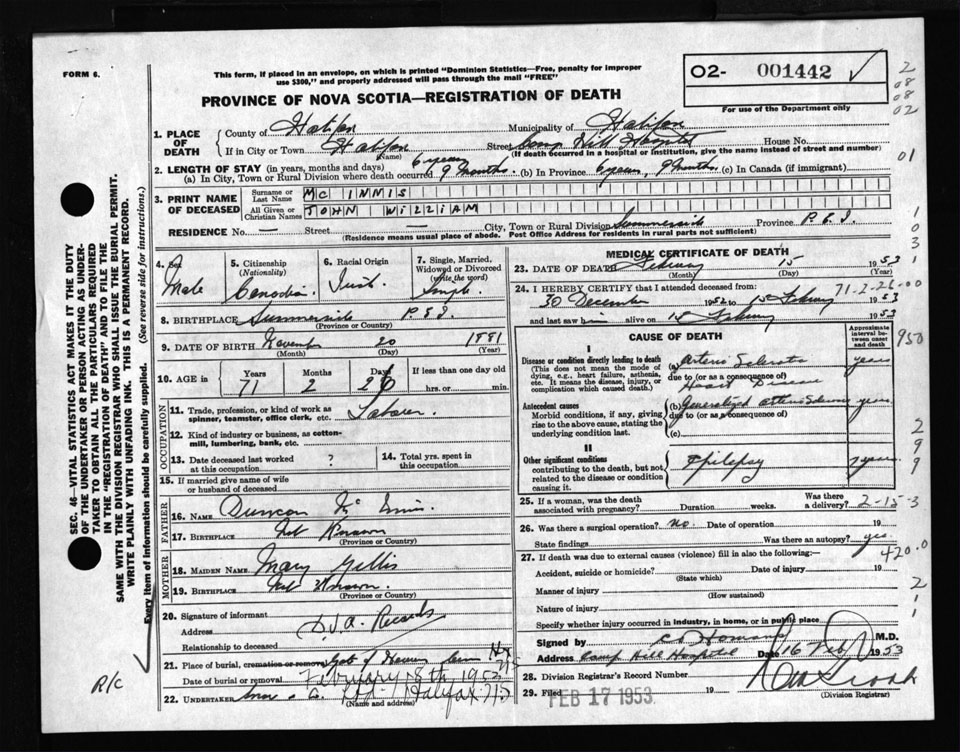 FORM 6.
This form, if placed in an envelope, on which is printed "Dominion Statistics—Free, penalty for improper
use $300," and properly addressed will pass through the mail "FREE"
O2- 001442 ✓
For use of the Department only
PROVINCE OF NOVA SCOTIA—REGISTRATION OF DEATH
2
08
08
02
01
1
0
3
1
1. PLACE OF DEATH
County of Halifax Municipality of Halifax
If in City or Town Halifax Street Camp Hill Hospital House No.
(Name) (If death occurred in a hospital or institution, give the name instead of street and number)
2. LENGTH OF STAY (in years, months and days)
(a) In City, Town or Rural Division where death occurred 6 years 9 months. (b) In Province 6 years, 9 months (c) In Canada (if immigrant)
3. PRINT NAME OF DECEASED
Surname or Last Name MC INNIS
All Given or Christian Names JOHN WILLIAM
RESIDENCE No. — Street — City, Town or Rural Division Summerside Province P.E.I.
(Residence means usual place of abode. Post Office Address for residents in rural parts not sufficient)
4. Sex Male
5. Citizenship (Nationality) Canadian
6. Racial Origin
7. Single, Married, Widowed or Divorced (write the word) Single
8. BIRTHPLACE Summerside P.E.I.
(Province or Country)
9. DATE OF BIRTH November 20 1881
(Month) (Day) (Year)
10. AGE in Years Months Days If less than one day old
71 2 hrs. or min.
OCCUPATION
11. Trade, profession, or kind of work as spinner, teamster, office clerk, etc. Laborer.
12. Kind of industry or business, as cotton-mill, lumbering, bank, etc.
13. Date deceased last worked at this occupation ?
14. Total yrs. spent in this occupation
15. If married give name of wife or husband of deceased
FATHER
16. NAME Duncan Mc Innis
17. BIRTHPLACE Not Known
(Province or Country)
MOTHER
18. MAIDEN NAME Mary Gillis
19. BIRTHPLACE Not Known.
(Province or Country)
20. Signature of informant
Address D.V.A. Records
Relationship to deceased
21. Place of burial, cremation or removal Gate of Heaven
Date of burial or removal February 18th 1953
22. UNDERTAKER Snow & Co. Ltd. Halifax N.S.
(Name and address)
MEDICAL CERTIFICATE OF DEATH
23. DATE OF DEATH February 15 1953
(Month) (Day) (Year)
24. I HEREBY CERTIFY that I attended deceased from: 71-2-26-00
30 December 1952 to 15 February 1953
and last saw him alive on 15 February 1953
CAUSE OF DEATH
Approximate interval between onset and death
950
I
Disease or condition directly leading to death
(This does not mean the mode of dying, e.g., heart failure, asthenia, etc. It means the disease, injury, or complication which caused death.)
(a) Arterio Sclerotic years
due to (or as a consequence of)
Heart Disease
Antecedent causes
Morbid conditions, if any, giving rise to the above cause, stating the underlying condition last.
(b) Generalized Arterio Sclerosis years.
due to (or as a consequence of)
(c)
II
Other significant conditions
contributing to the death, but not related to the disease or condition causing it.
Epilepsy years
2
9
9
25. If a woman, was the death associated with pregnancy? Duration weeks. Was there a delivery? 2-15-3
26. Was there surgical operation? no Date of operation 19
State findings Was there an autopsy? yes
27. If death was due to external causes (violence) fill in also the following:— 420.0
Accident, suicide or homicide? Date of injury 19
(State which)
Manner of injury
(How sustained)
Nature of injury
Specify whether injury occurred in industry, in home, or in public place
2
1
1
Signed by M.D.
Address Camp Hill Hospital Date 16 Feb 1953
28. Division Registrar's Record Number
29. Filed FEB 17 1953 19
(Division Registrar)
SEC. 46—VITAL STATISTICS ACT MAKES IT THE DUTY
OF THE UNDERTAKER OR PERSON ACTING AS UNDER-
TAKER TO OBTAIN ALL THE PARTICULARS REQUIRED
IN THE "REGISTRATION OF DEATH" AND TO FILE THE
SAME WITH THE DIVISION REGISTRAR WHO SHALL ISSUE THE BURIAL PERMIT.
WRITE PLAINLY WITH UNFADING INK. THIS IS A PERMANENT RECORD.
Every item of Information should be carefully supplied. (See reverse side for instructions.)
R/C